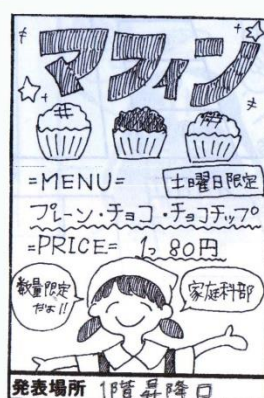 マフィン
=MENU=
土曜日限定
プレーン・チョコ・チョコチップ
=PRICE= 1つ80円
数量限定
だよ!!
家庭科部
発表場所 1階昇降口